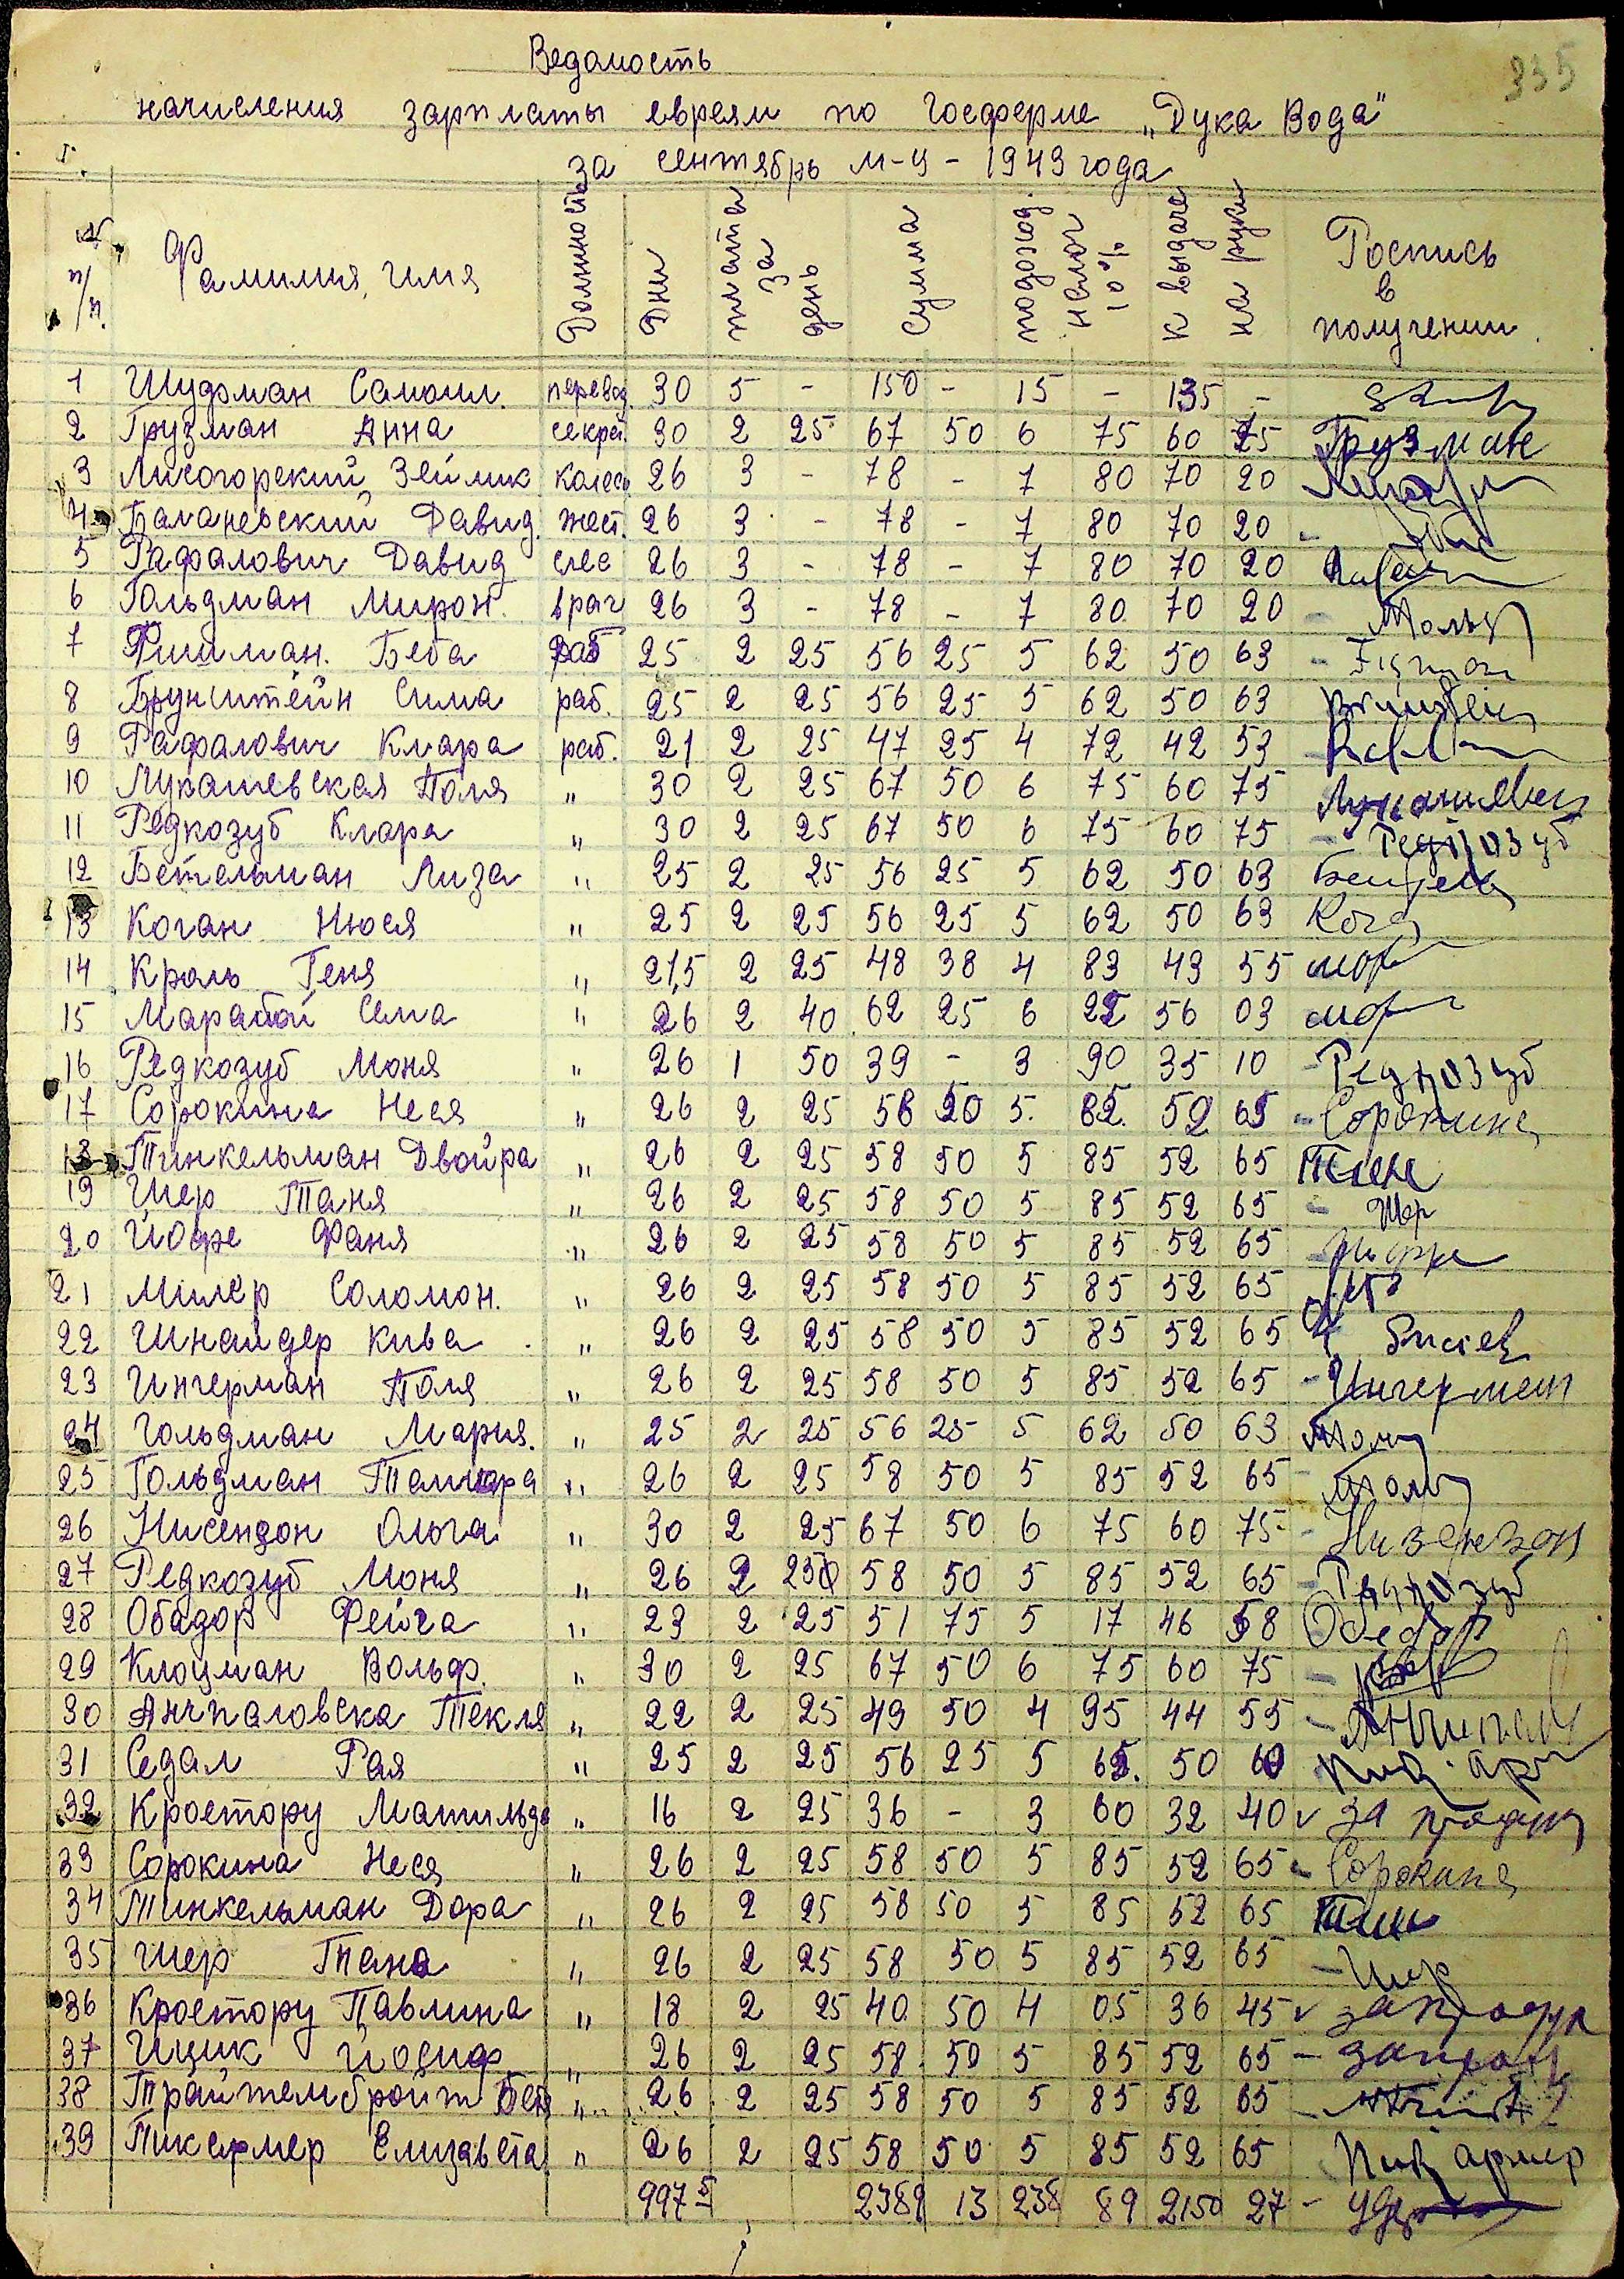 335
Ведомость
начисления зарплаты евреям по Госферме „Дука Вода"
за сентябрь м-ц - 1943 года
№ п/п. Фамилия, имя Должность Дни плата за день Сумма подоход. налог 10% к выдаче на руки Роспись в получении.
1 Шуфман Самоил. перевод. 30 5 - 150 - 15 - 135 -
2 Грузман Анна секрет. 30 2 25 67 50 6 75 60 75 Грузман
3 Лисогорский Зейлик колес. 26 3 - 78 - 7 80 70 20
4 Балановский Давид. жест. 26 3 - 78 - 7 80 70 20
5 Рафалович Давид слес 26 3 - 78 - 7 80 70 20
6 Гольдман Мирон. врач 26 3 - 78 - 7 80 70 20
7 Фишман. Беба раб 25 2 25 56 25 5 62 50 63
8 Брунштейн Сима раб. 25 2 25 56 25 5 62 50 63
9 Рафалович Клара раб. 21 2 25 47 25 4 72 42 53
10 Лукашевская Поля „ 30 2 25 67 50 6 75 60 75
11 Редкозуб Клара „ 30 2 25 67 50 6 75 60 75 - Редкозуб
12 Бетельман Лиза „ 25 2 25 56 25 5 62 50 63
13 Коган Нюся „ 25 2 25 56 25 5 62 50 63
14 Кроль Геня „ 21,5 2 25 48 38 4 83 43 55
15 Марабой Сема „ 26 2 40 62 25 6 22 56 03
16 Редкозуб Моня „ 26 1 50 39 - 3 90 35 10 - Редкозуб
17 Сорокина Неся „ 26 2 25 58 50 5. 85. 52 65 - Сорокина
18 Тинкельман Двойра „ 26 2 25 58 50 5 85 52 65
19 Шер Таня „ 26 2 25 58 50 5 85 52 65 - Шер
20 Иофе Фаня „ 26 2 25 58 50 5 85 52 65
21 Милер Соломон. „ 26 2 25 58 50 5 85 52 65
22 Шнайдер Кива „ 26 2 25 58 50 5 85 52 65
23 Ингерман Поля „ 26 2 25 58 50 5 85 52 65 - Ингерман
24 Гольдман Мария. „ 25 2 25 56 25 5 62 50 63
25 Гольдман Тамара „ 26 2 25 58 50 5 85 52 65
26 Нисензон Ольга „ 30 2 25 67 50 6 75 60 75 - Низензон
27 Редкозуб Моня „ 26 2 25 58 50 5 85 52 65 - Редкозуб
28 Обадор Фейга „ 23 2 25 51 75 5 17 46 58
29 Клоцман Вольф. „ 30 2 25 67 50 6 75 60 75 -
30 Анчполовска Текля „ 22 2 25 49 50 4 95 44 55 -
31 Седал Рая „ 25 2 25 56 25 5 62. 50 63
32 Кроетору Матильда „ 16 2 25 36 - 3 60 32 40 v
33 Сорокина Неся „ 26 2 25 58 50 5 85 52 65 - Сорокина
34 Тинкельман Дора „ 26 2 25 58 50 5 85 52 65
35 Шер Тана „ 26 2 25 58 50 5 85 52 65 - Шер
36 Кроетору Павлина „ 18 2 25 40 50 4 05 36 45 v
37 Ицик Иосиф „ 26 2 25 58 50 5 85 52 65 -
38 Трайтельбройт Бетя „ 26 2 25 58 50 5 85 52 65 -
39 Пикермер Елизавета „ 26 2 25 58 50 5 85 52 65
997 5 2389 13 238 89 2150 27 -